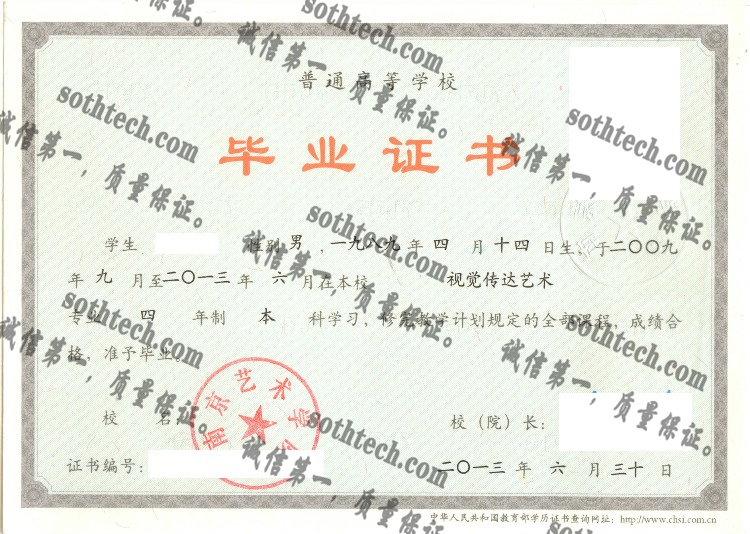 普通高等学校
毕业证书
学生 性别 男 ,一九八九 年 四 月 十四 日生,于二〇〇九
年 九 月至二〇一三 年 六 月在本校 视觉传达艺术
专业 四 年制 本 科学习,修完教学计划规定的全部课程,成绩合
格,准予毕业。
南京艺术学
校 名: 校(院)长:
证书编号: 二〇一三 年 六 月 三十 日
中华人民共和国教育部学历证书查询网址: http://www.chsi.com.cn
sothtech.com
诚信第一,质量保证。
sothtech.com
诚信第一,质量保证。
sothtech.com
诚信第一,质量保证。
sothtech.com
诚信第一,质量保证。
sothtech.com
诚信第一,质量保证。
sothtech.com
诚信第一,质量保证。
sothtech.com
诚信第一,质量保证。